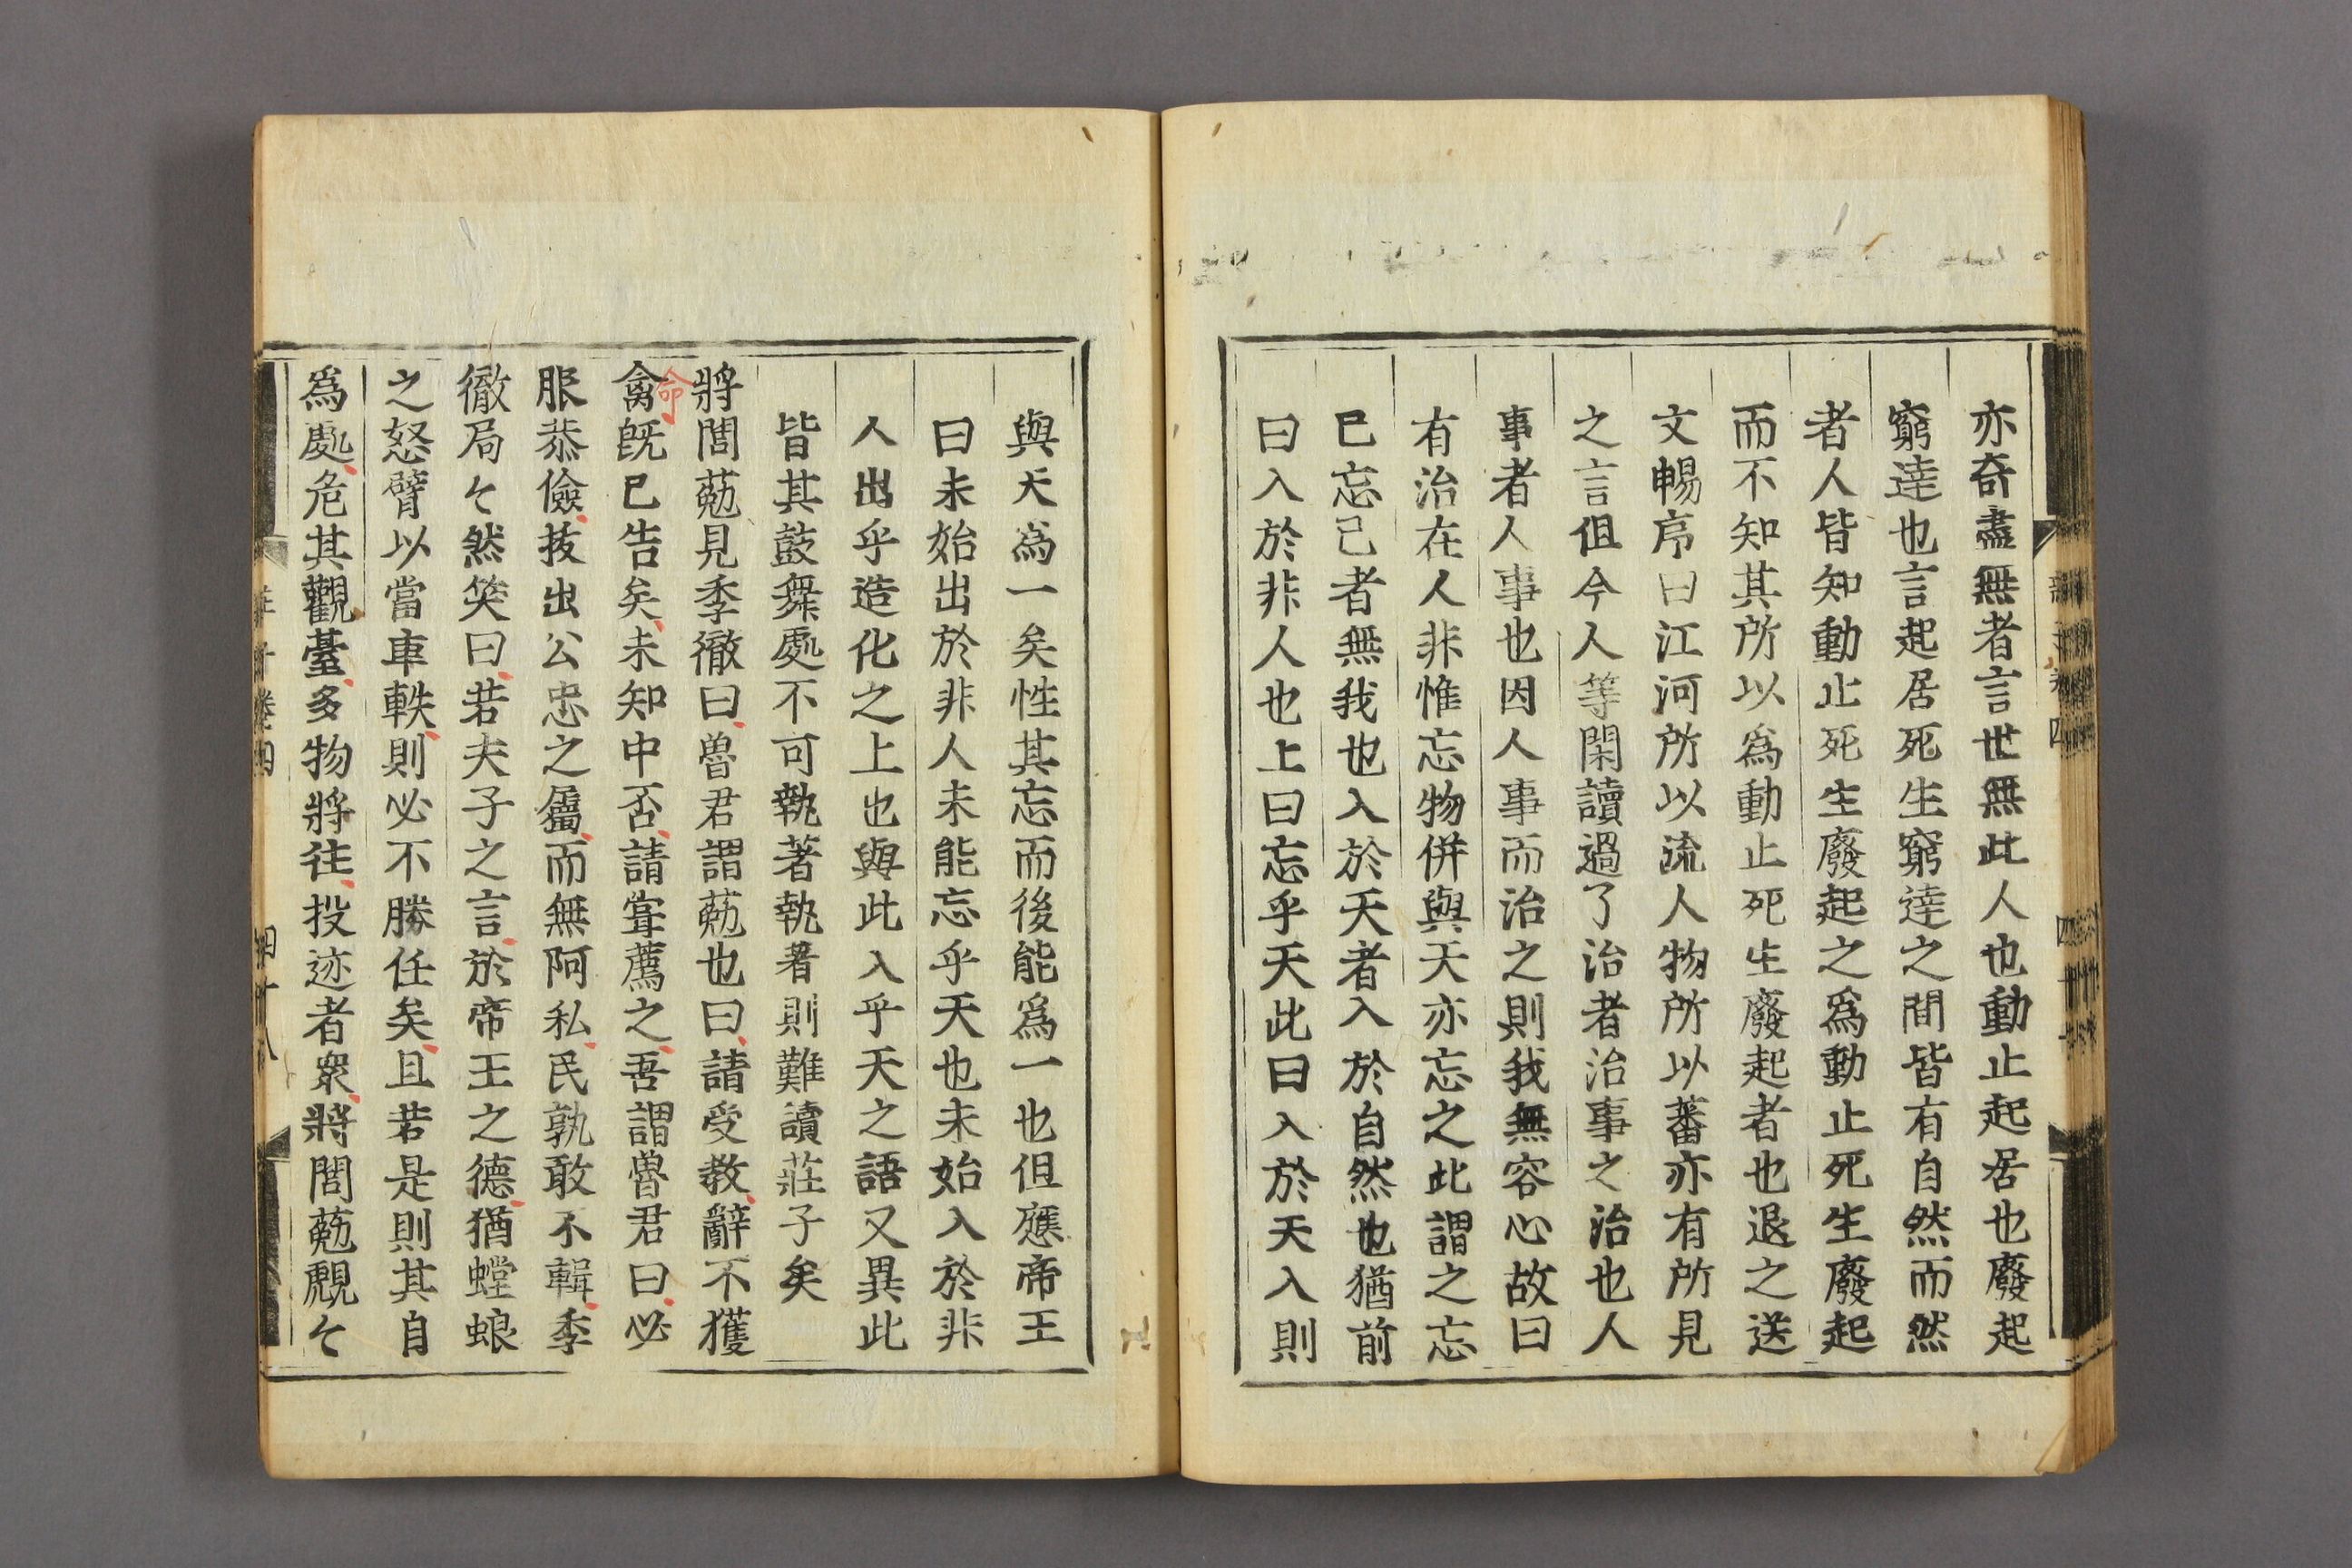 亦奇盡無者言世無此人也動止起居也廢起
窮逹也言起居死生窮逹之間皆有自然而然
者人皆知動止死生廢起之爲動止死生廢起
而不知其所以爲動止死生廢起者也退之送
文暢序曰江河所以流人物所以蕃亦有所見
之言但今人等閑讀過了治者治事之治也人
事者人事也因人事而治之則我無容心故曰
有治在人非惟忘物併與天亦忘之此謂之忘
已忘己者無我也入於天者入於自然也猶前
曰入於非人也上曰忘乎天此曰入於天入則
與天爲一矣性其忘而後能爲一也但應帝王
曰未始出於非人未能忘乎天也未始入於非
人出乎造化之上也與此入乎天之語又異此
皆其鼓舞處不可執著執著則難讀莊子矣
將閭葂見季徹曰魯君謂葂也曰請受教辭不獲
命
禽既已告矣未知中否請嘗薦之吾謂魯君曰必
服恭儉拔出公忠之屬而無阿私民孰敢不輯季
徹局〻然笑曰若夫子之言於帝王之德猶螳蜋
之怒臂以當車軼則必不勝任矣且若是則其自
爲處危其觀臺多物將往投迹者衆將閭葂覤〻
莊子卷四
四十八